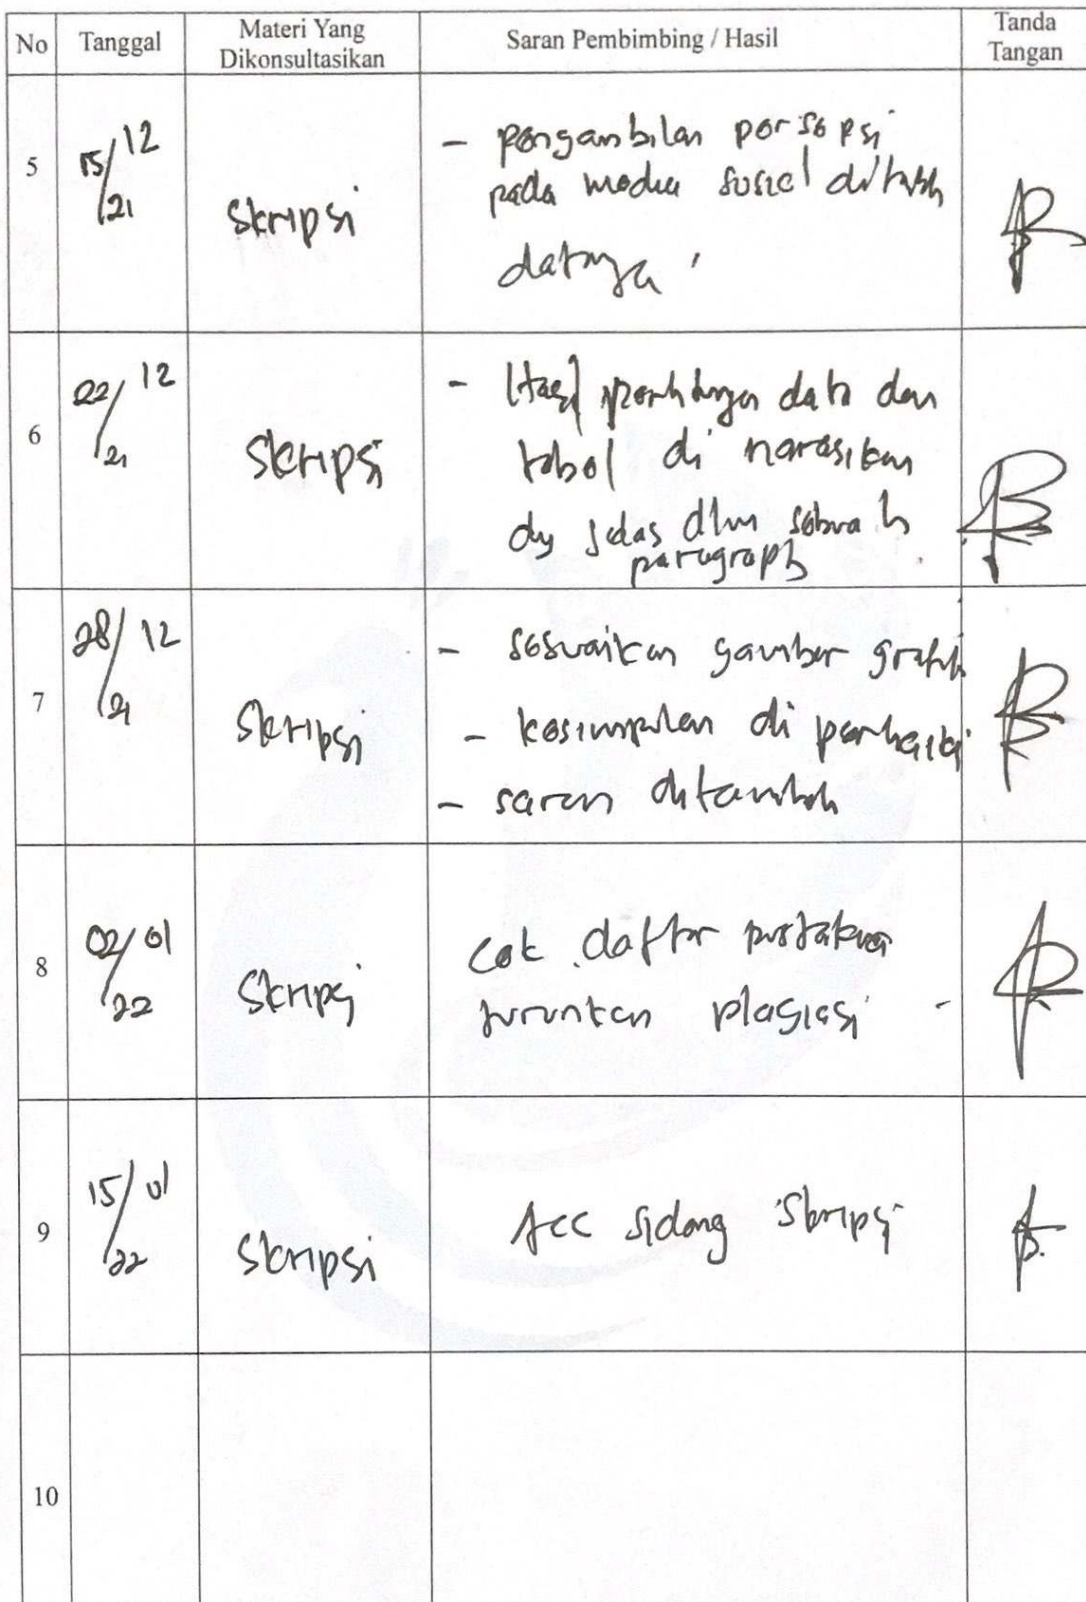 No Tanggal Materi Yang Dikonsultasikan Saran Pembimbing / Hasil Tanda Tangan
5 15/12/21 Skripsi - pengambilan persepsi
pada media sosial
datanya
6 22/12/21 Skripsi - Hasil data dan
tabel di narasikan
dg jelas dlm sebuah
paragraph
7 28/12/21 Skripsi - sesuaikan gambar grafik
- kesimpulan di perbaiki
- saran ditambah
8 02/01/22 Skripsi cek daftar pustaka
turunkan plagiasi
9 15/01/22 Skripsi Acc sidang Skripsi
10